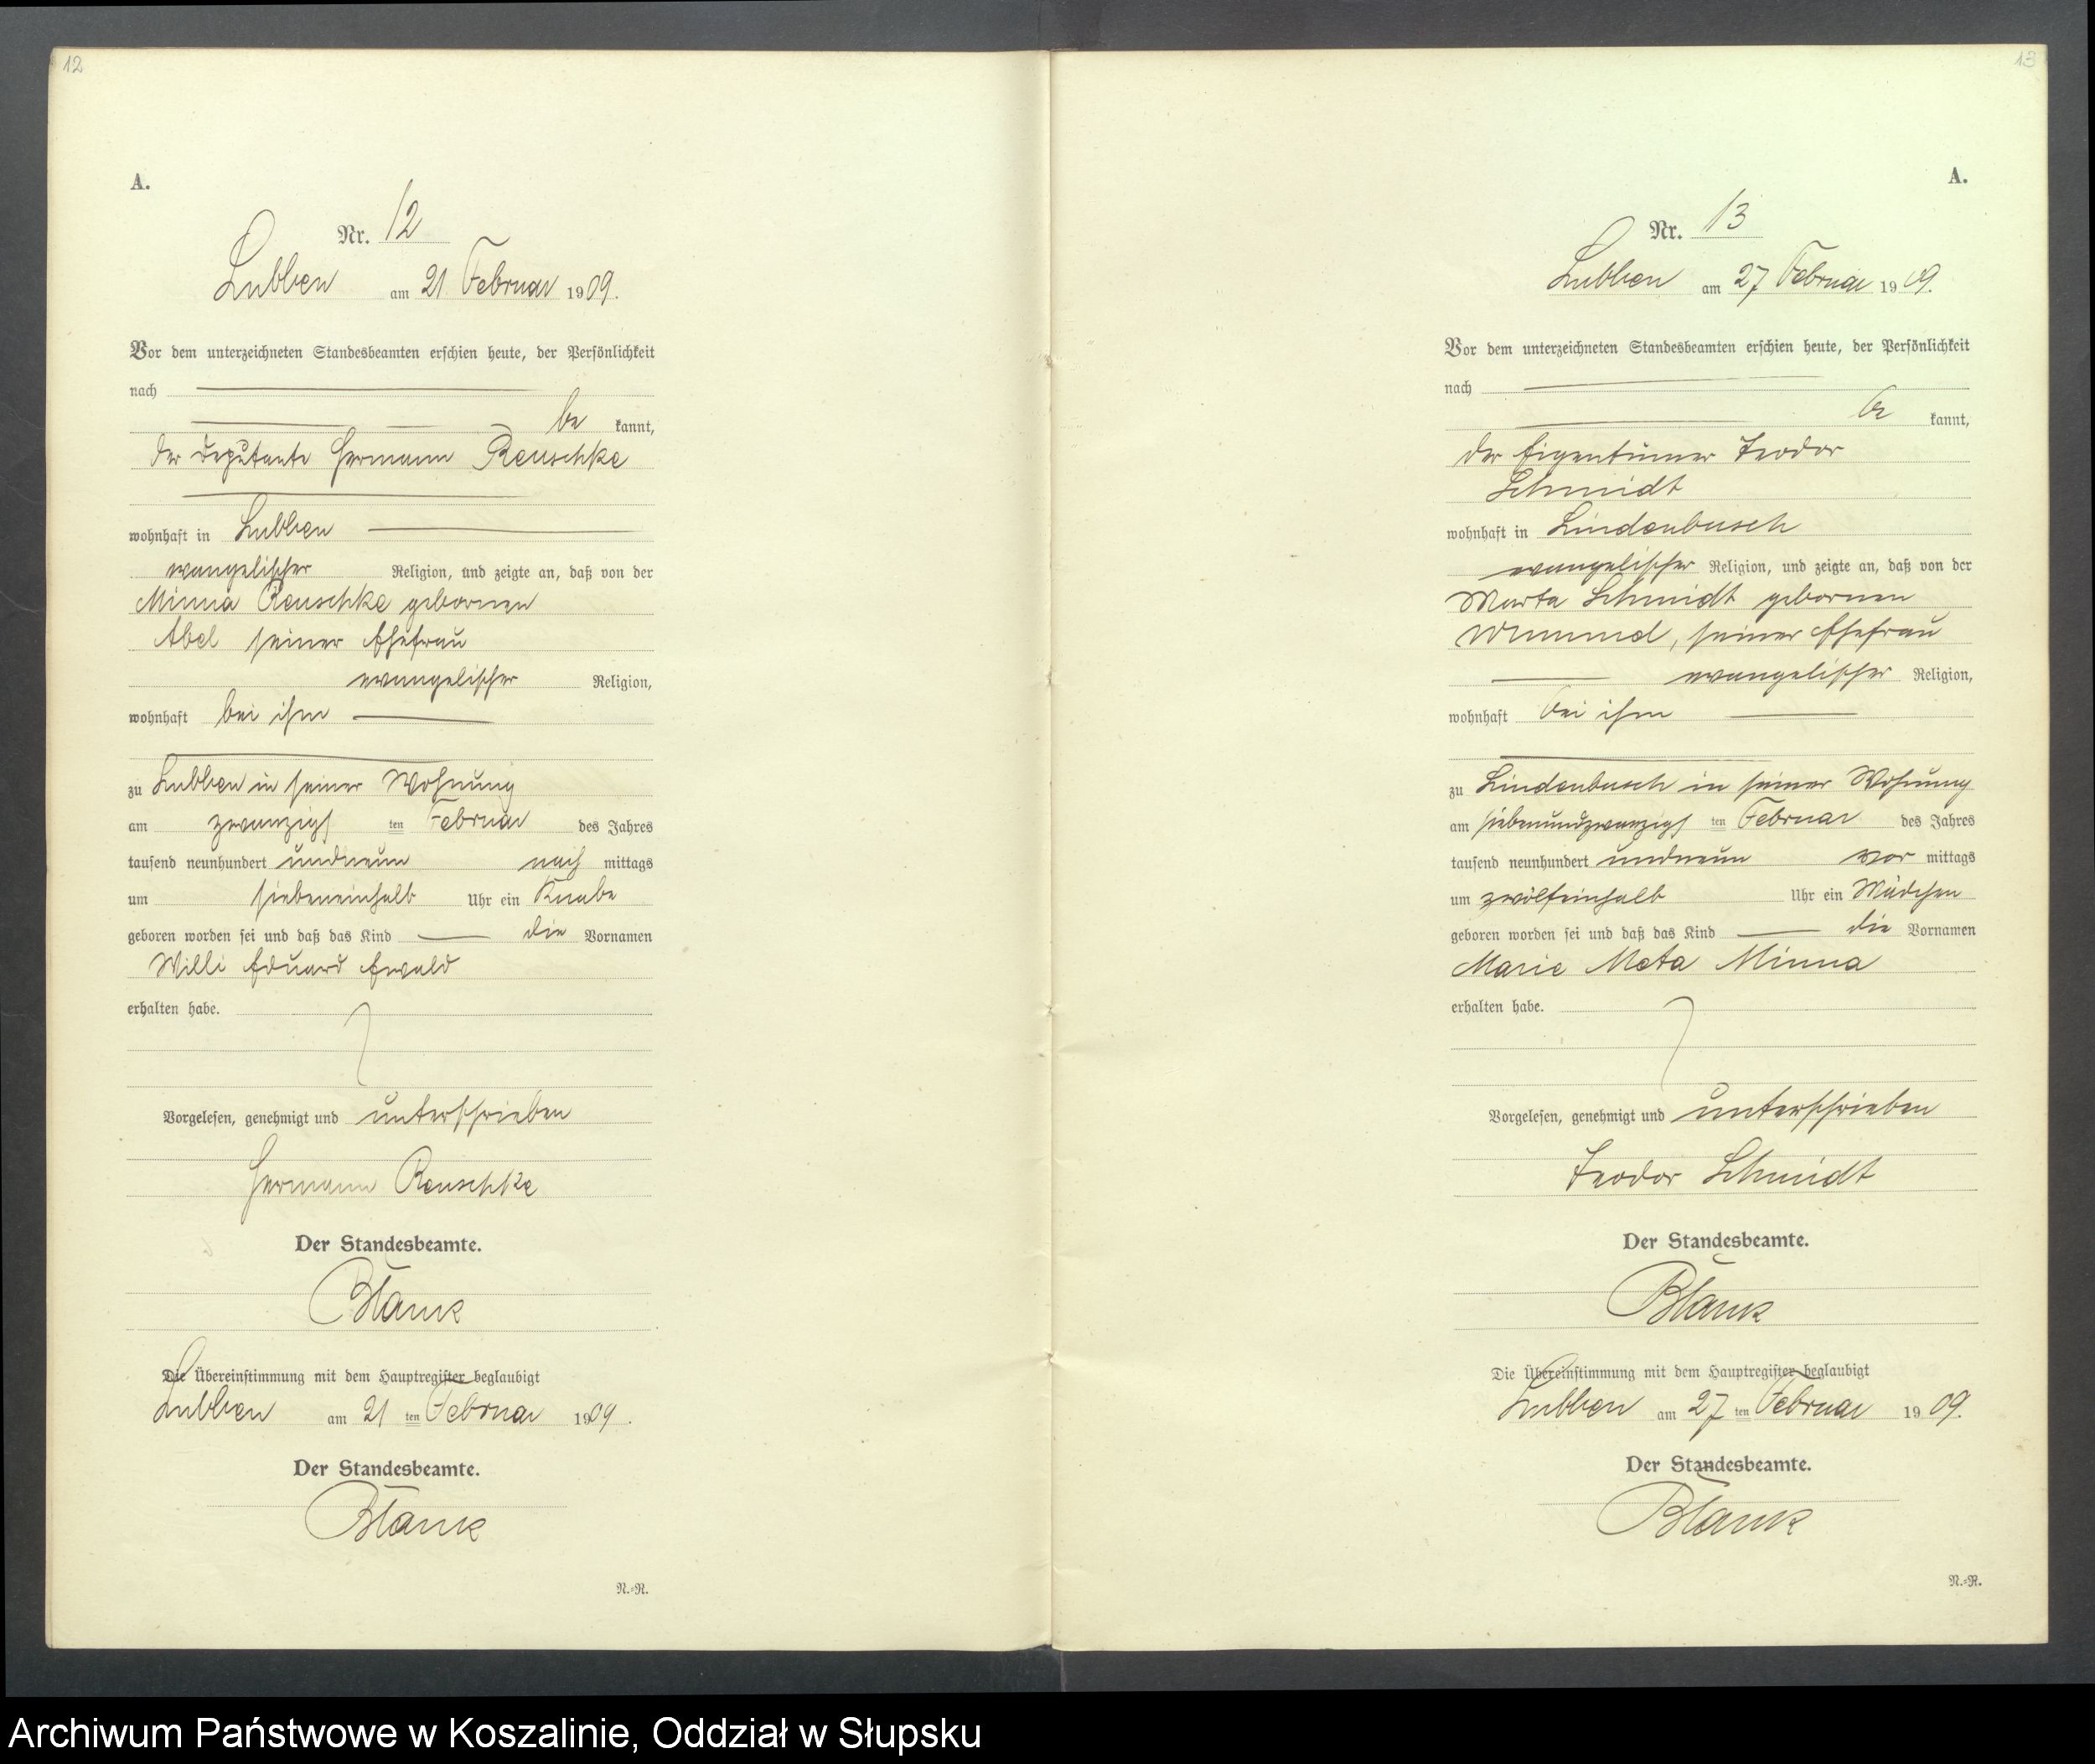 12
A.
Nr. 12
Lubben am 21 Februar 1909.
Vor dem unterzeichneten Standesbeamten erschien heute, der Persönlichkeit
nach
be kannt,
der Deputante Hermann Reuschke
wohnhaft in Lubben
evangelischer Religion, und zeigte an, daß von der
Minna Reuschke geborenen
Abel seiner Ehefrau
evangelischer Religion,
wohnhaft bei ihm
zu Lubben in seiner Wohnung
am zwanzigs ten Februar des Jahres
tausend neunhundert undneun nach mittags
um siebeneinhalb Uhr ein Knabe
geboren worden sei und daß das Kind die Vornamen
Willi Eduard Ewald
erhalten habe.
Vorgelesen, genehmigt und unterschrieben
Hermann Reuschke
Der Standesbeamte.
Blank
Die Übereinstimmung mit dem Hauptregister beglaubigt
Lubben am 21 ten Februar 1909.
Der Standesbeamte.
Blank
N.-R.
13
A.
Nr. 13
Lubben am 27 Februar 1909.
Vor dem unterzeichneten Standesbeamten erschien heute, der Persönlichkeit
nach
be kannt,
der Eigentümer Teodor
Schmidt
wohnhaft in Lindenbusch
evangelischer Religion, und zeigte an, daß von der
Marta Schmidt geborenen
seiner Ehefrau
evangelischer Religion,
wohnhaft bei ihm
zu Lindenbusch in seiner Wohnung
am siebenundzwanzigs ten Februar des Jahres
tausend neunhundert undneun vor mittags
um zwölfeinhalb Uhr ein Mädchen
geboren worden sei und daß das Kind die Vornamen
Marie Meta Minna
erhalten habe.
Vorgelesen, genehmigt und unterschrieben
Teodor Schmidt
Der Standesbeamte.
Blank
Die Übereinstimmung mit dem Hauptregister beglaubigt
Lubben am 27 ten Februar 1909.
Der Standesbeamte.
Blank
N.-R.
Archiwum Państwowe w Koszalinie, Oddział w Słupsku